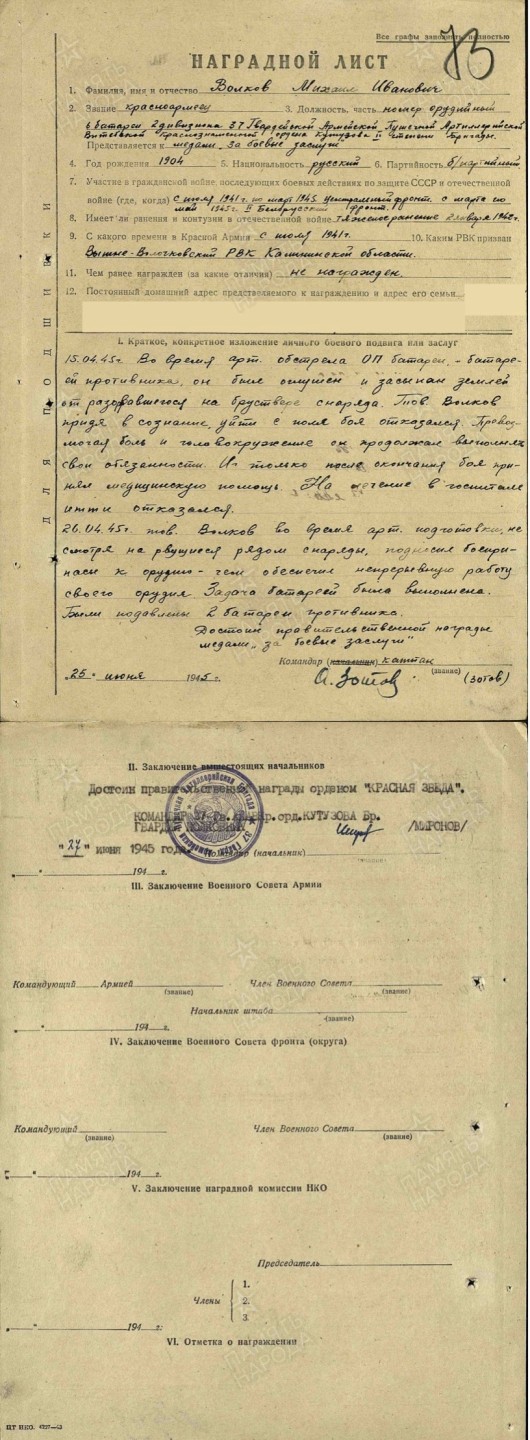 Все графы заполнять полностью
73
НАГРАДНОЙ ЛИСТ
1. Фамилия, имя и отчество Волков Михаил Иванович
2. Звание красноармеец 3. Должность, часть номер орудийный
6 батареи 2 дивизиона 37 Гвардейской Армейской Пушечной Артиллерийской
Витебской Краснознаменной ордена Кутузова II степени бригады.
Представляется к медали „За боевые заслуги"
4. Год рождения 1904 5. Национальность русский 6. Партийность б/партийный
7. Участие в гражданской войне, последующих боевых действиях по защите СССР и отечественной
войне (где, когда) с июля 1941г. по март 1945 Центральный фронт. с марта по
май 1945г. II Белорусский фронт.
8. Имеет ли ранения и контузии в отечественной войне тяжело ранение января 1942г.
9. С какого времени в Красной Армии с июля 1941г. 10. Каким РВК призван
Вышне-Волочковский РВК Калининской области.
11. Чем ранее награжден (за какие отличия) не награжден.
12. Постоянный домашний адрес представляемого к награждению и адрес его семьи
ДЛЯ ПОДШИВКИ
I. Краткое, конкретное изложение личного боевого подвига или заслуг
15.04.45г. Во время арт. обстрела ОП батареи, - батаре-
ей противника, он был оглушен и засыпан землей
от разорвавшегося на бруствере снаряда. Тов. Волков
придя в сознание, уйти с поля боя отказался. Превоз-
мочая боль и головокружение он продолжал выполнять
свои обязанности. И только после окончания боя при-
нял медицинскую помощь. На лечение в госпиталь
итти отказался.
26.04.45г. тов. Волков во время арт. подготовки, не
смотря на рвущиеся рядом снаряды, подносил боепри-
пасы к орудию - чем обеспечил непрерывную работу
своего орудия. Задача батареей была выполнена.
Были подавлены 2 батареи противника.
Достоин правительственной награды
медали „За боевые заслуги"
Командир (начальник) капитан
(звание)
„25" июня 1945г. А. Зотов (Зотов)
II. Заключение вышестоящих начальников
Достоин правительственной награды орденом "КРАСНАЯ ЗВЕЗДА".
КОМАНДИР 37 Гв. Кр. орд. КУТУЗОВА Бр.
ГВАРДИИ ПОЛКОВНИК /МИРОНОВ/
"27" июня 1945 года Командир (начальник)
(звание)
„ " 194 г.
III. Заключение Военного Совета Армии
Командующий Армией Член Военного Совета
(звание) (звание)
Начальник штаба
(звание)
„ " 194 г.
IV. Заключение Военного Совета фронта (округа)
Командующий Член Военного Совета
(звание) (звание)
„ " 194 г.
V. Заключение наградной комиссии НКО
Председатель
Члены
1.
2.
3.
„ " 194 г.
VI. Отметка о награждении
ЦТ НКО.